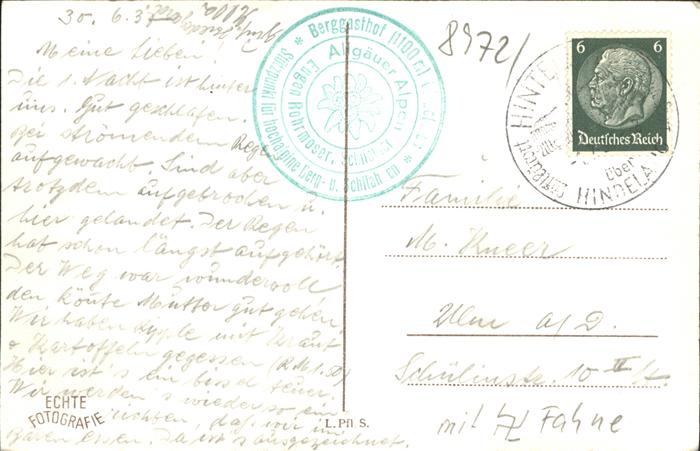 30. 6. 37
Meine Lieben!
Die 1. Nacht ist hinter
uns. Gut geschlafen.
Bei strömendem Regen
aufgewacht. Sind aber
trotzdem aufgebrochen u.
hier gelandet. Der Regen
hat schon längst aufgehört.
Der Weg war wundervoll
den könnte Mutter gut gehen.
Wir haben mit Kraut
& Kartoffeln gegessen (R.M. 1.50)
Hier ist's ein bissel teuer.
Wir werden's wieder so ein-
richten, daß wir im
essen. Da ist's ausgezeichnet.
ECHTE
FOTOGRAFIE
L. Pfl S.
Berggasthof (1100 m)
Allgäuer Alpen
Eugen Rohrmoser,
Stützpunkt für hochalpine Lern- u.
8972/
6 6
Deutsches Reich
HINTE
über
HINDELA
Familie
M. Kneer
Ulm a/D.
Schülinstr. 10 II St.
mit Fahne